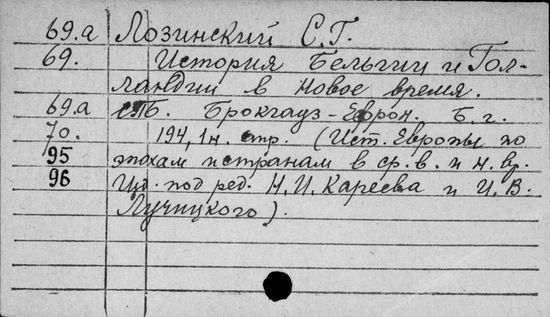 69.а Лозинский С.Г.
69. История Бельгии и Гол-
ландии в новое время.
69.а СПБ. Брокгауз-Ефрон. Б.г.
70. 194, 1н. стр. (Ист. Европы по
95 эпохам и странам в ср. в. и н. вр.
96 Изд. под ред. Н.И. Кареева и И.В.
Лучицкого).